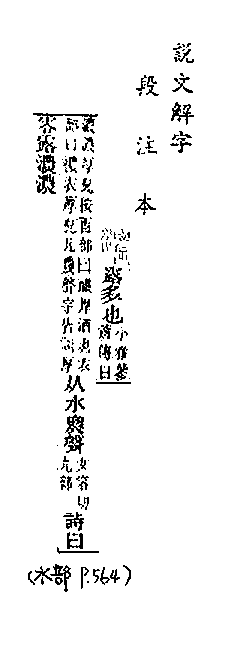 説文解字
段注本
露多也小雅蓼
蕭傳曰
濃濃厚皃按酉部曰醲厚酒也衣
部曰襛衣厚皃凡農聲字皆訓厚
从水農聲女容切
九部
詩曰
零露濃濃
(水部 P.564)